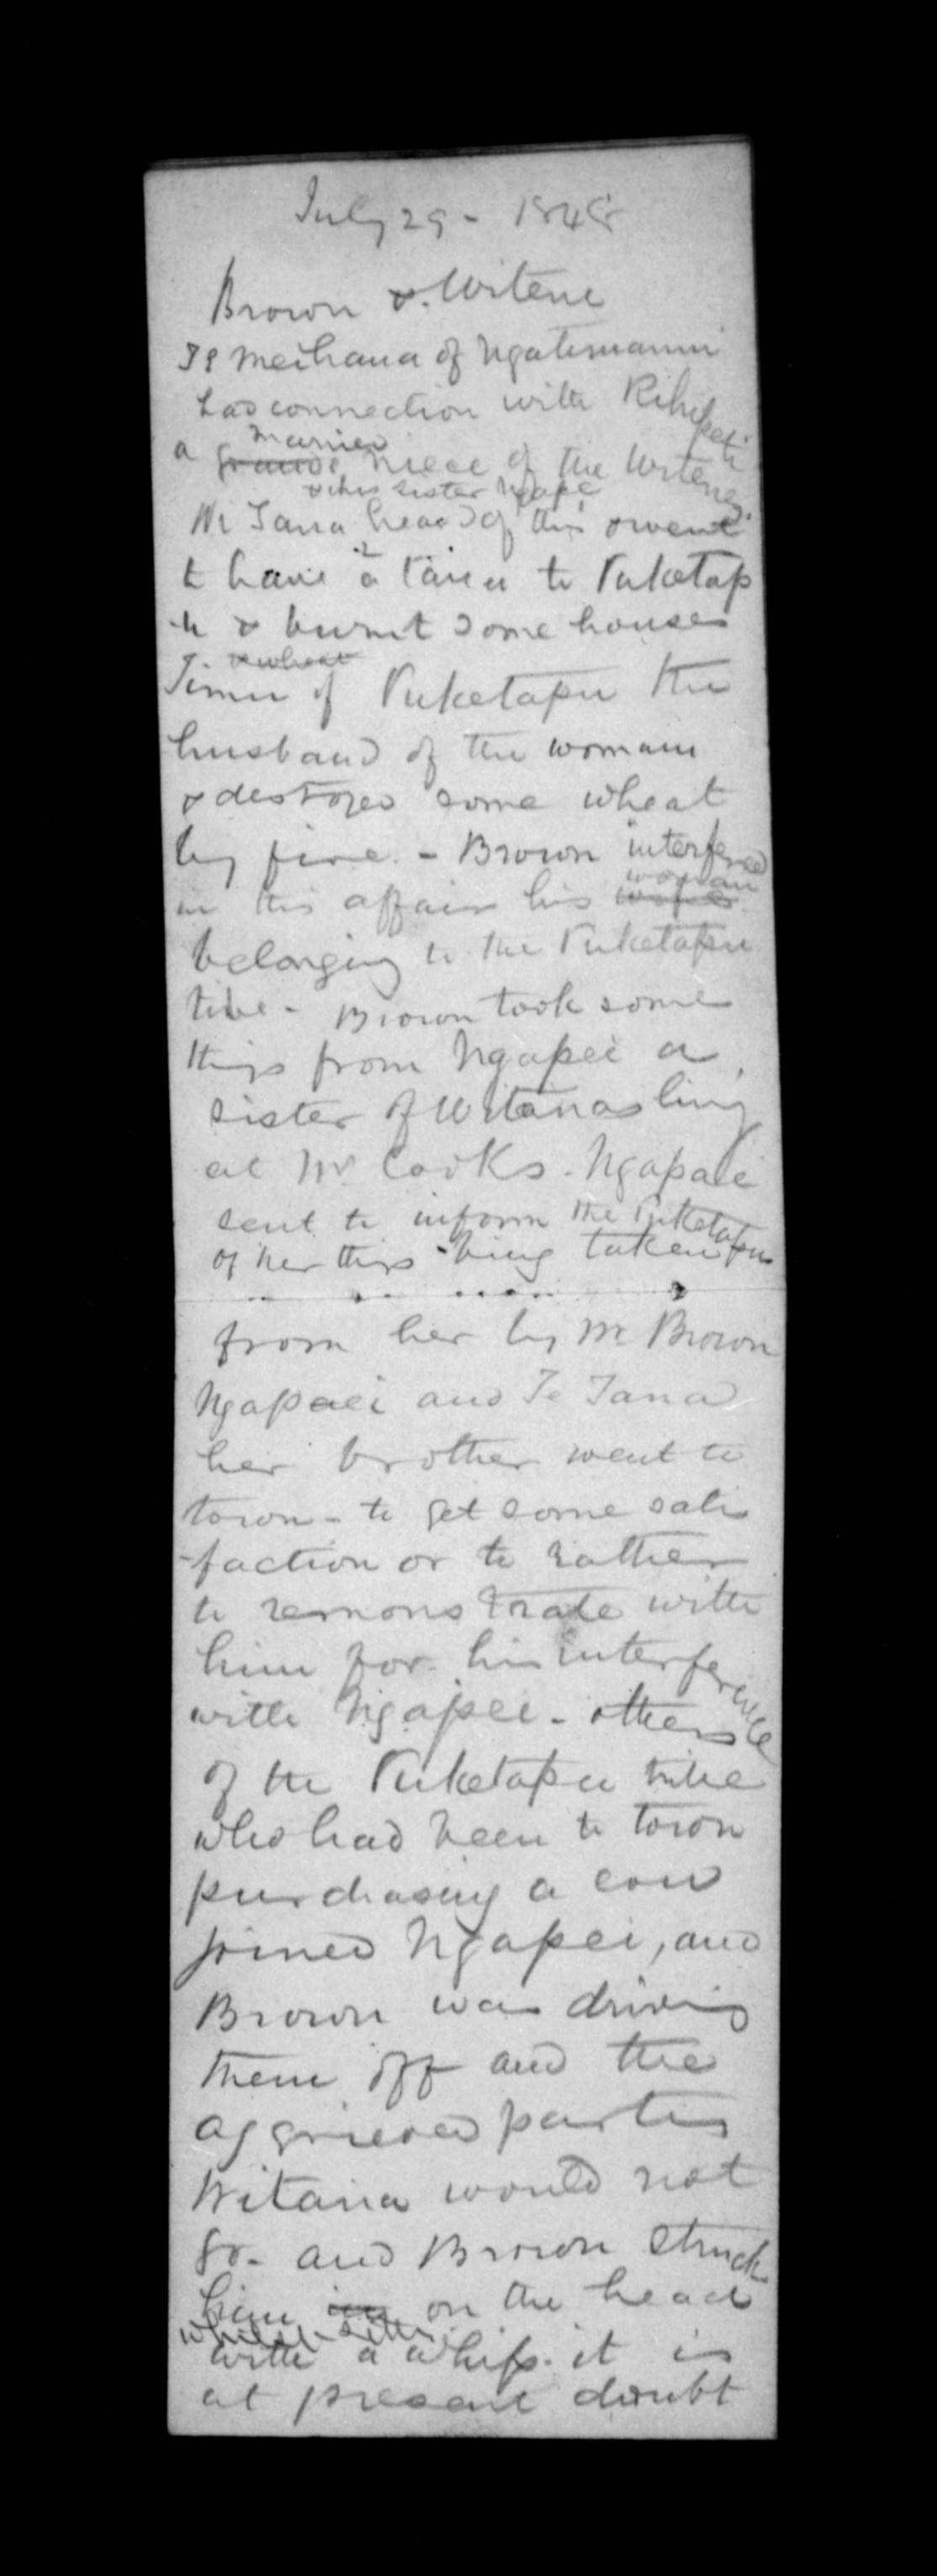 July 29 - 1848
Brown & Witene
Te Meihana of Ngatimanui
had connection with Rihipeti
married
a grand niece of the Witenes
& his sister Ngape
Wi Tana head of this & went
to have a taua to Puketap
-u & burnt some houses
& wheat
Timu of Puketapu the
husband of the woman
& destroyed some wheat
by fire. - Brown interfered
woman
in this affair his wife
belonging to the Puketapu
tibe - Brown took some
things from Ngapei a
sister of Witanas living
at Mr Cooks. Ngapaei
sent to inform the Puketapu
of her things being taken
from her by Mr Brown
Ngapaei and Te Tana
her brother went to
town - to get some satis
-faction or to rather
to remonstrate with
him for his interference
with Ngapei - others
of the Puketapu tribe
who had been to town
purchasing a cow
joined Ngapei, and
Brown was driving
them off and the
aggrieved party
Witana would not
go - and Brown struck
him on the head
whilst
with a whip. it is
at present doubt